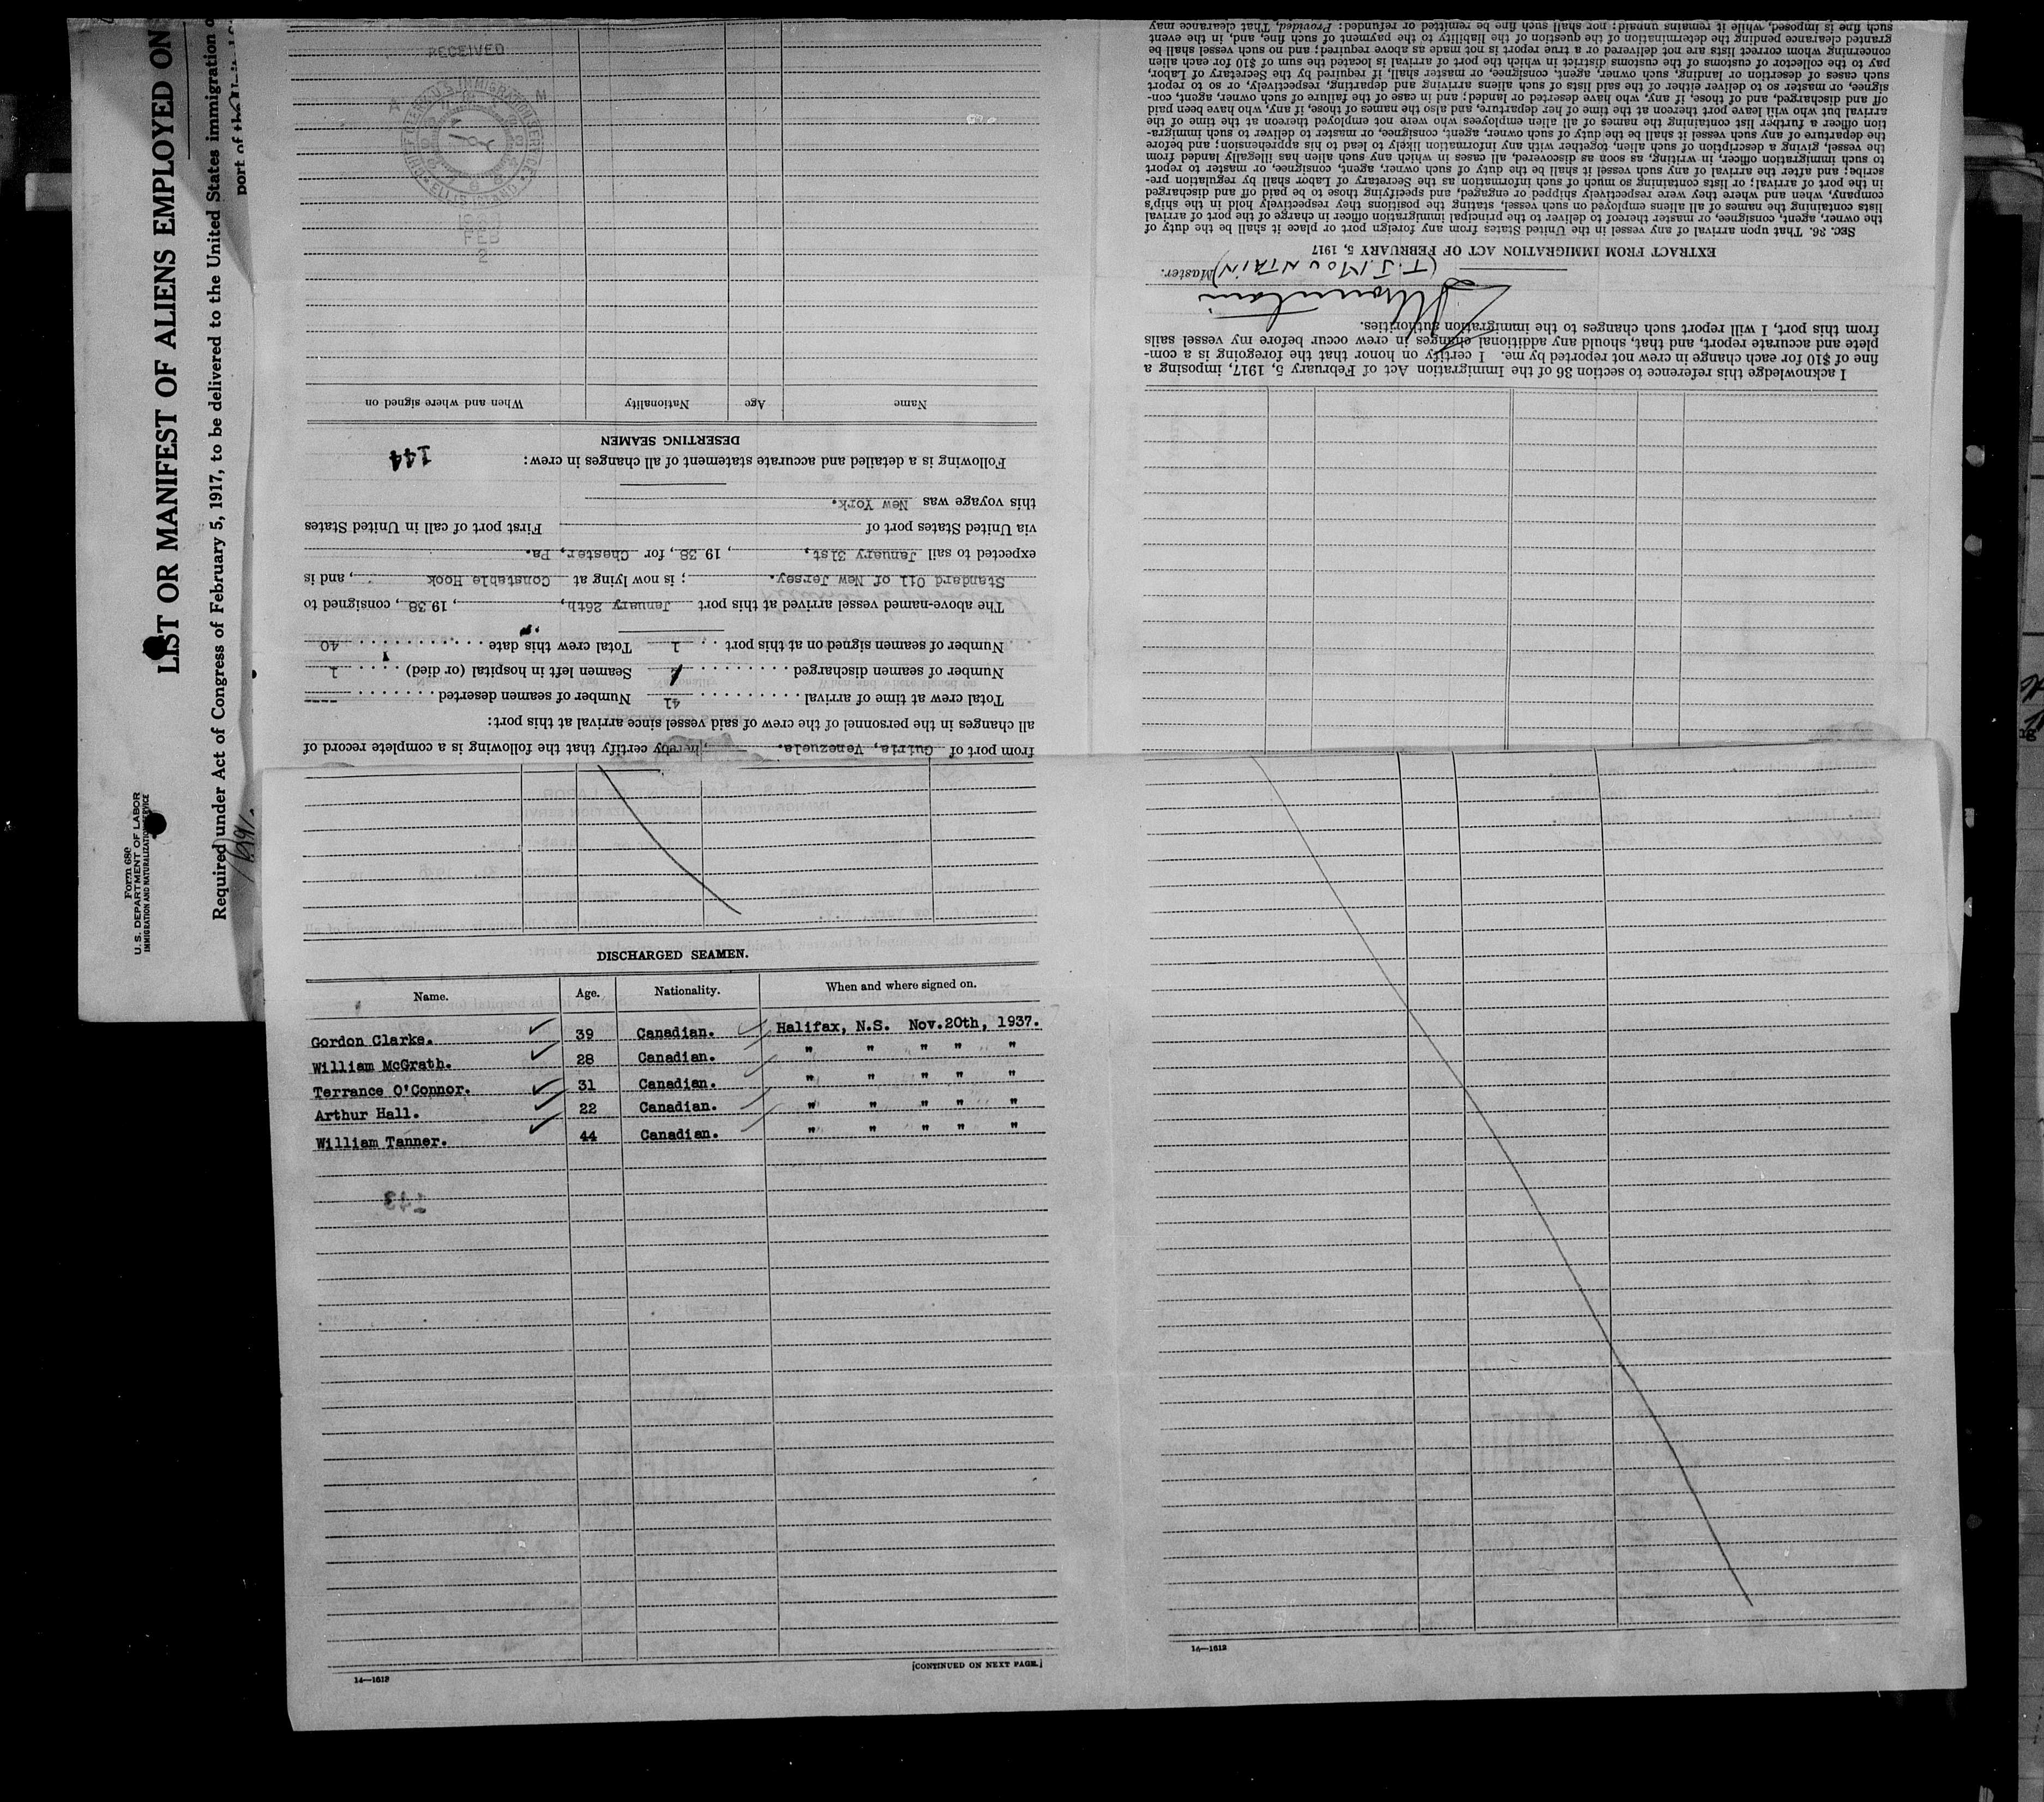 Form 680
U. S. DEPARTMENT OF LABOR
IMMIGRATION AND NATURALIZATION SERVICE
LIST OR MANIFEST OF ALIENS EMPLOYED ON
Required under Act of Congress of February 5, 1917, to be delivered to the United States immigration
port of
from port of Guiria, Venezuela. , hereby certify that the following is a complete record of
all changes in the personnel of the crew of said vessel since arrival at this port:
Total crew at time of arrival . . . . . . . . . . 41 Number of seamen deserted . . . . . . . ----
Number of seamen discharged . . . . . . . . Seamen left in hospital (or died) . . . . 1
Number of seamen signed on at this port . . 1 Total crew this date . . . . . . . . . . . 40
The above-named vessel arrived at this port January 26th, , 19 38, consigned to
Standard Oil of New Jersey. ; is now lying at Constable Hook , and is
expected to sail January 31st, , 19 38, for Chester, Pa.
via United States port of First port of call in United States
this voyage was New York.
Following is a detailed and accurate statement of all changes in crew:
144
DESERTING SEAMEN
Name Age Nationality When and where signed on
2
FEB
1938
U. S. IMMIGRATION SERVICE
ELLIS ISLAND
RECEIVED
I acknowledge this reference to section 36 of the Immigration Act of February 5, 1917, imposing a
fine of $10 for each change in crew not reported by me. I certify on honor that the foregoing is a com-
plete and accurate report, and that, should any additional changes in crew occur before my vessel sails
from this port, I will report such changes to the immigration authorities.
(T. J. MOUNTAIN) Master.
EXTRACT FROM IMMIGRATION ACT OF FEBRUARY 5, 1917
SEC. 36. That upon arrival of any vessel in the United States from any foreign port or place it shall be the duty of
the owner, agent, consignee, or master thereof to deliver to the principal immigration officer in charge of the port of arrival
lists containing the names of all aliens employed on such vessel, stating the positions they respectively hold in the ship's
company, when and where they were respectively shipped or engaged, and specifying those to be paid off and discharged
in the port of arrival; or lists containing so much of such information as the Secretary of Labor shall by regulation pre-
scribe; and after the arrival of any such vessel it shall be the duty of such owner, agent, consignee, or master to report
to such immigration officer, in writing, as soon as discovered, all cases in which any such alien has illegally landed from
the vessel, giving a description of such alien, together with any information likely to lead to his apprehension; and before
the departure of any such vessel it shall be the duty of such owner, agent, consignee, or master to deliver to such immigra-
tion officer a further list containing the names of all alien employees who were not employed thereon at the time of the
arrival but who will leave port thereon at the time of her departure, and also the names of those, if any, who have been paid
off and discharged, and of those, if any, who have deserted or landed; and in case of the failure of such owner, agent, con-
signee, or master so to deliver either of the said lists of such aliens arriving and departing, respectively, or so to report
such cases of desertion or landing, such owner, agent, consignee, or master shall, if required by the Secretary of Labor,
pay to the collector of customs of the customs district in which the port of arrival is located the sum of $10 for each alien
concerning whom correct lists are not delivered or a true report is not made as above required; and no such vessel shall be
granted clearance pending the determination of the question of the liability to the payment of such fine, and, in the event
such fine is imposed, while it remains unpaid; nor shall such fine be remitted or refunded: Provided, That clearance may
DISCHARGED SEAMEN.
Name. Age. Nationality. When and where signed on.
Gordon Clarke. 39 Canadian. Halifax, N.S. Nov.20th, 1937.
William McGrath. 28 Canadian. " " " " "
Terrance O'Connor. 31 Canadian. " " " " "
Arthur Hall. 22 Canadian. " " " " "
William Tanner. 44 Canadian. " " " " "
143
14—1612
[CONTINUED ON NEXT PAGE.]
14—1612